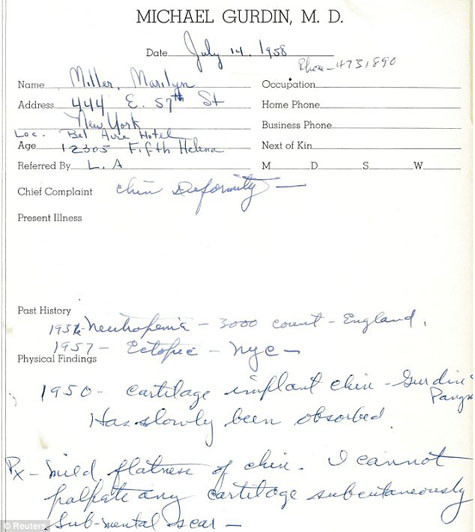 MICHAEL GURDIN, M. D.
Date July 14, 1958
Phone - 4731890
Name Miller, Marilyn
Occupation
Address 444 E. 57th St
Home Phone
New York
Business Phone
Loc. Bel Aire Hotel
Age 12305 Fifth Helena
Next of Kin
Referred By L. A
M D S W
Chief Complaint chin Deformity -
Present Illness
Past History
1956 Neutropenia - 3000 count - England.
1957 - Ectopic - NYC -
Physical Findings
1950 - cartilage implant chin - Gurdin
Has slowly been absorbed.
Px - mild flatness of chin. I cannot
palpate any cartilage subcutaneously
Sub-mental scar -
© Reuters